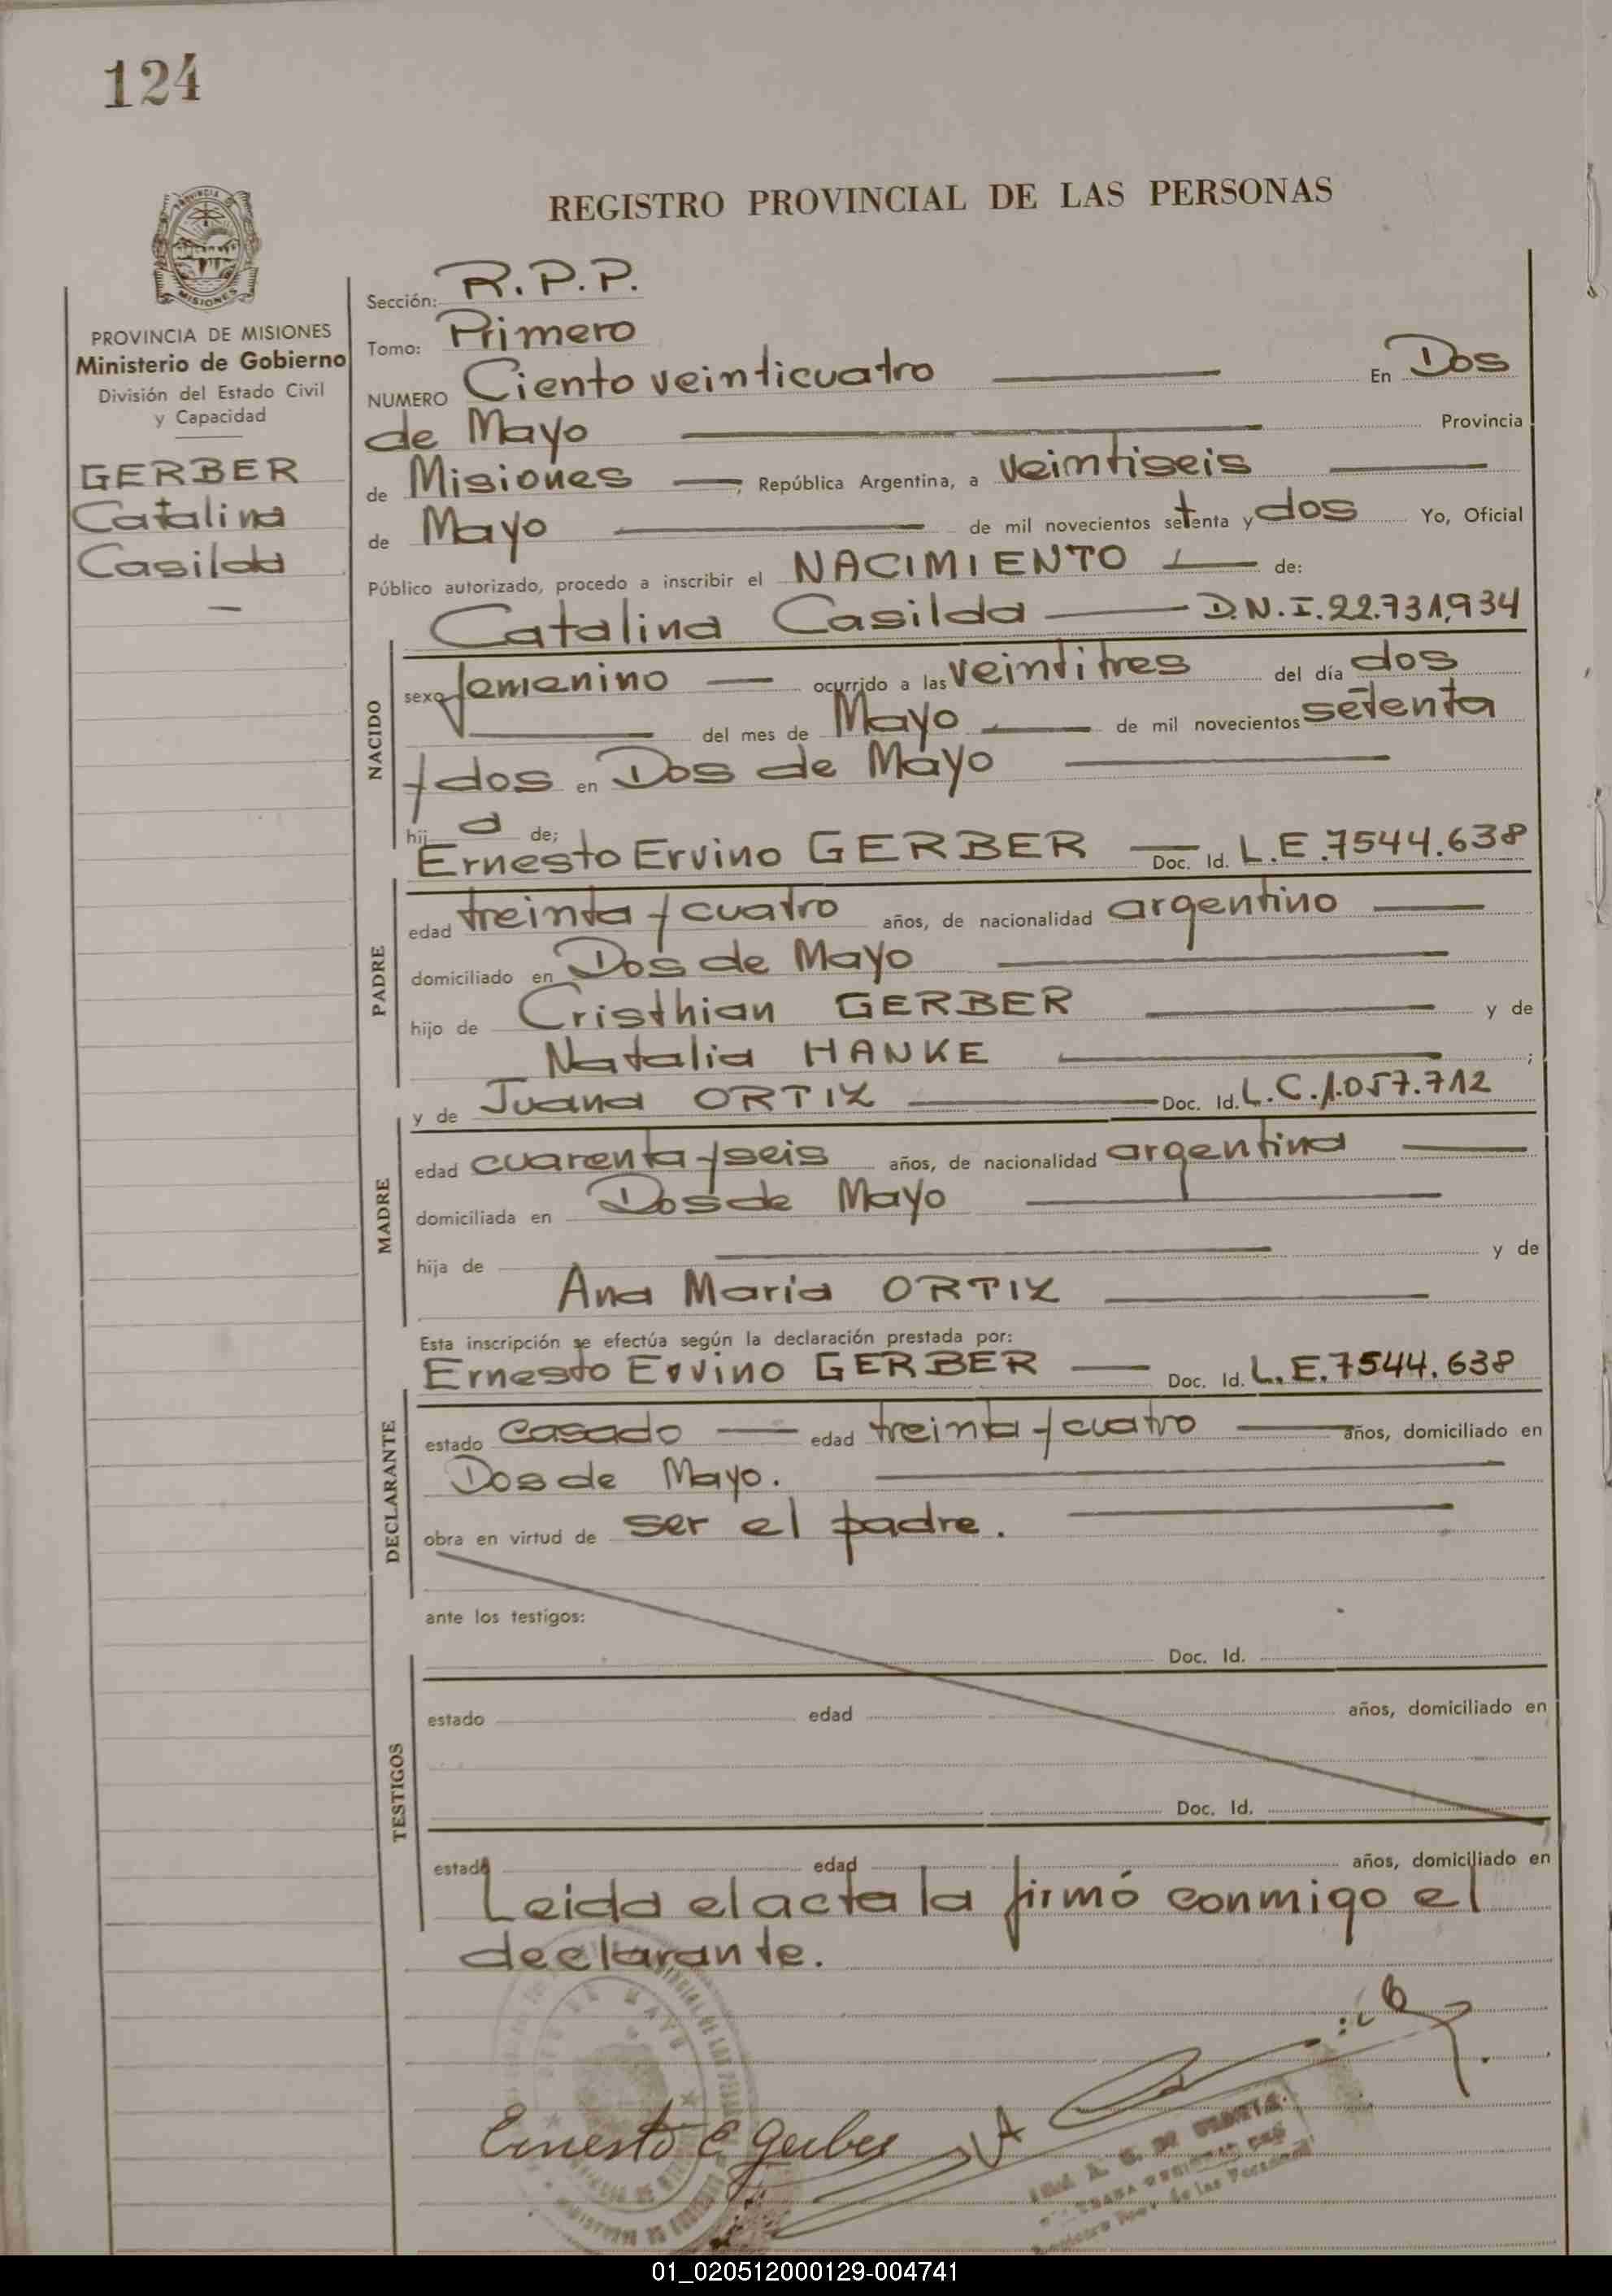 124
REGISTRO PROVINCIAL DE LAS PERSONAS
PROVINCIA
MISIONES
PROVINCIA DE MISIONES
Ministerio de Gobierno
División del Estado Civil
y Capacidad
GERBER
Catalina
Casilda
Sección: R.P.P.
Tomo: Primero
NUMERO Ciento veinticuatro En Dos
de Mayo Provincia
de Misiones, República Argentina, a veintiseis
de Mayo de mil novecientos setenta y dos Yo, Oficial
Público autorizado, procedo a inscribir el NACIMIENTO de:
Catalina Casilda D.N.I. 22.731,934
NACIDO
sexo femenino ocurrido a las veintitres del día dos
del mes de Mayo de mil novecientos setenta
y dos en Dos de Mayo
hij a de;
Ernesto Ervino GERBER Doc. Id. L.E. 7544.638
PADRE
edad treinta y cuatro años, de nacionalidad argentino
domiciliado en Dos de Mayo
hijo de Cristhian GERBER y de
Natalia HANKE ;
y de Juana ORTIZ Doc. Id. L.C. 1.057.712
MADRE
edad cuarenta y seis años, de nacionalidad argentina
domiciliada en Dos de Mayo
hija de y de
Ana Maria ORTIZ
Esta inscripción se efectúa según la declaración prestada por:
Ernesto Ervino GERBER Doc. Id. L.E. 7544.638
DECLARANTE
estado casado edad treinta y cuatro años, domiciliado en
Dos de Mayo.
obra en virtud de ser el padre.
ante los testigos:
Doc. Id.
TESTIGOS
estado edad años, domiciliado en
Doc. Id.
estado edad años, domiciliado en
Leida el acta la firmó conmigo el
declarante.
Ernesto E Gerber
01_020512000129-004741